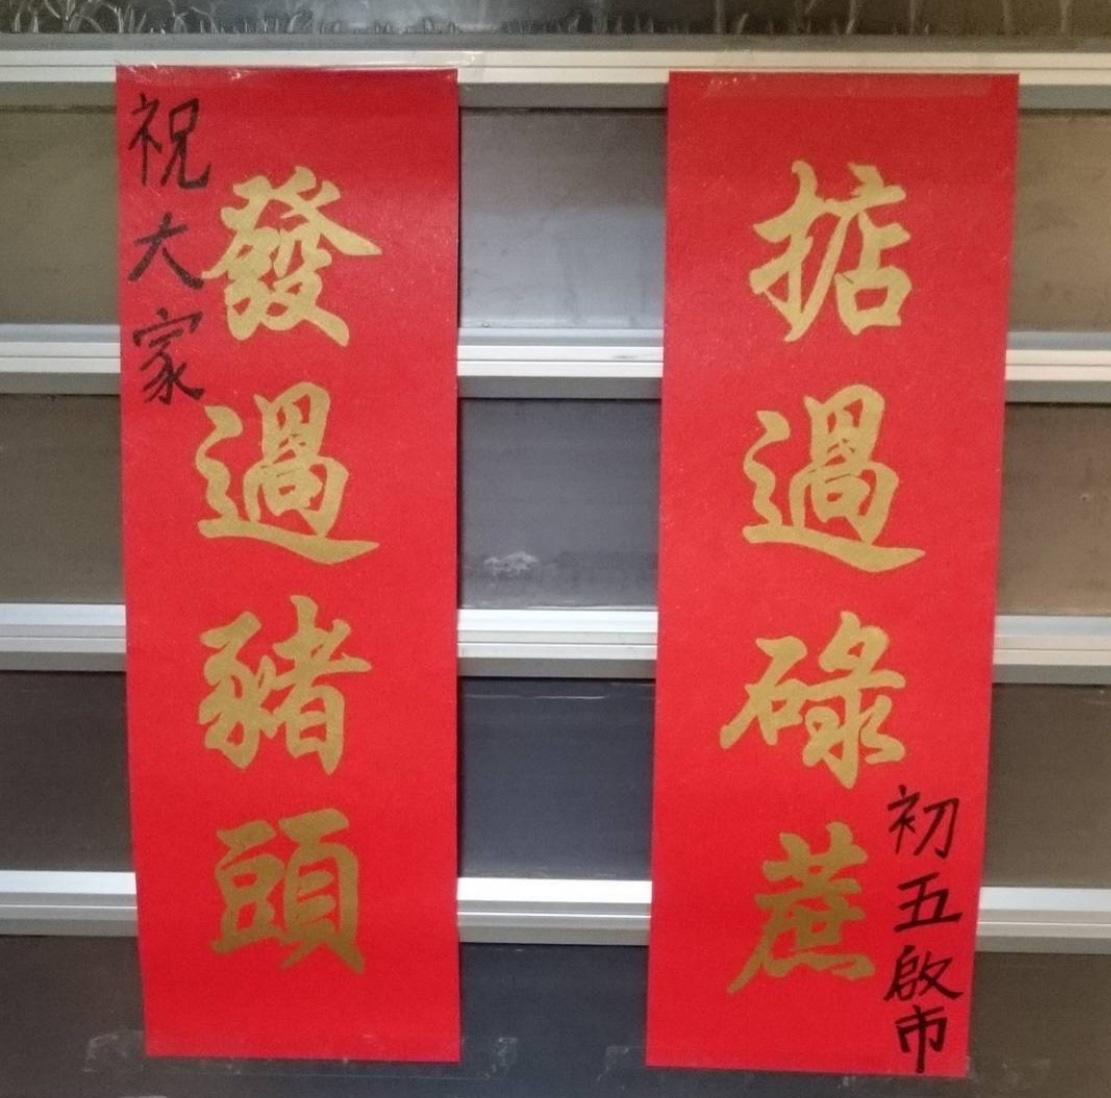 祝大家
發過豬頭
掂過碌蔗
初五啟市